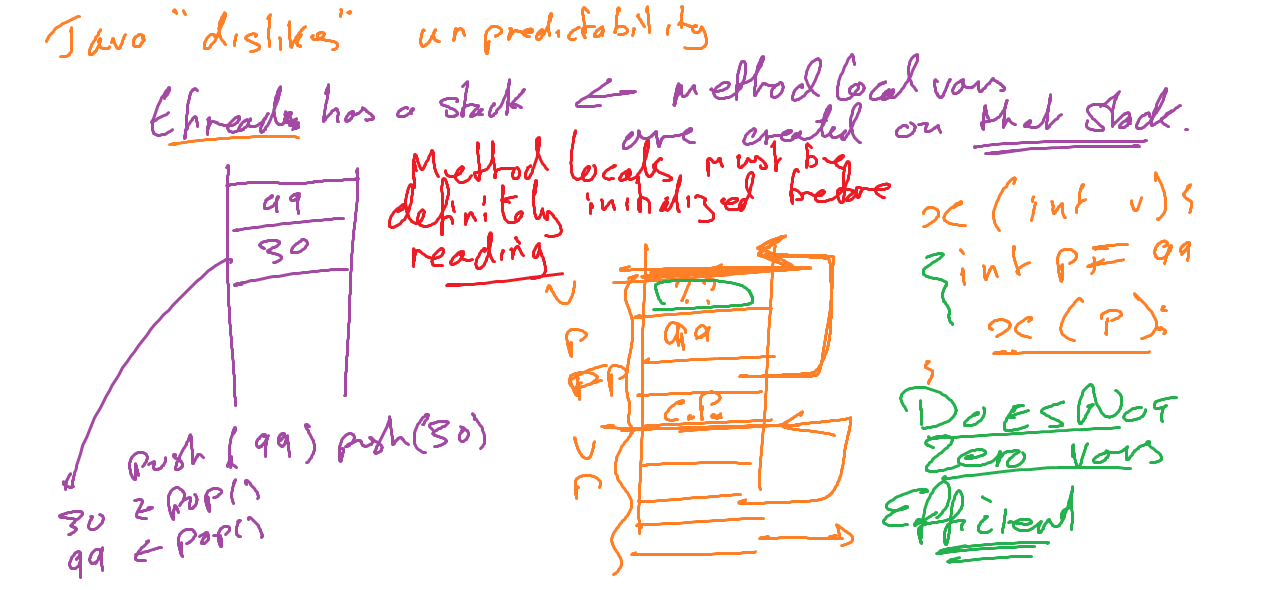 Java "dislikes" unpredictability
Thread has a stack ← method local vars
are created on that stack.
Method locals must be
definitely initialized before
reading
99
30
push(99) push(30)
30 ← pop()
99 ← pop()
V
??
P
99
FP
C.P.
V
P
x (int v) {
int p = 99
x (p);
}
Does Not
Zero vars
Efficient